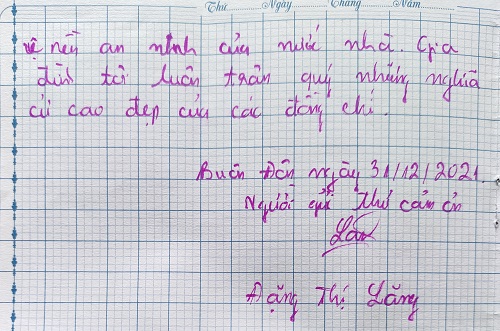 Thứ Ngày Tháng Năm
vệ nền an ninh của nước nhà. Gia
đình tôi luôn trân quý những nghĩa
cử cao đẹp của các đồng chí.
Buôn Đôn ngày 31/12/2021.
Người gửi thư cảm ơn
Lăng
Đặng Thị Lăng